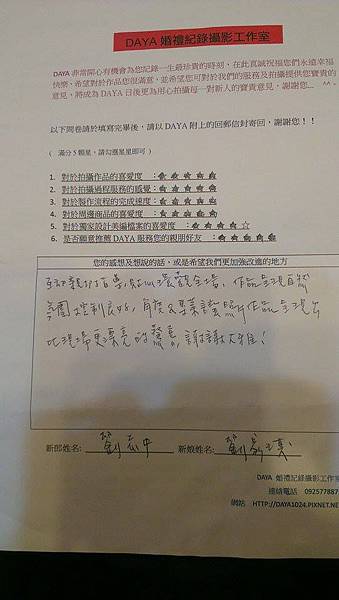 DAYA 婚禮紀錄攝影工作室
DAYA 非常開心有機會為您記錄一生最珍貴的時刻，在此真誠祝福您們永遠幸福
快樂，希望對於作品您很滿意，並希望您可對於我們的服務及拍攝提供您寶貴的
意見，將成為 DAYA 日後更為用心拍攝每一對新人的寶貴意見，謝謝您… ^^。
以下問卷請於填寫完畢後，請以 DAYA 附上的回郵信封寄回，謝謝您！！
( 滿分 5 顆星，請勾選星星即可 )
1. 對於拍攝作品的喜愛度 ：★ ★ ★ ★ ★
2. 對於拍攝過程服務的感覺：★ ★ ★ ★ ★
3. 對於製作流程的完成速度：★ ★ ★ ★ ★
4. 對於周邊商品的喜愛度 ：★ ★ ★ ★ ★
5. 對於獨家設計美編檔案的喜愛度 ：★ ★ ★ ★ ☆
6. 是否願意推薦 DAYA 服務您的親朋好友 ：★ ★ ★ ★ ★
您的感想及想說的話，或是希望我們更加強改進的地方
環觀全場，作品呈現自然
氛圍控制良好，專業證照所作品呈現出
比現場更漂亮的驚喜，謝謝大雅！
新郎姓名： 劉 中 新娘姓名： 劉
DAYA 婚禮紀錄攝影工作室
連絡電話 092577887
網站 HTTP://DAYA1024.PIXNET.NE